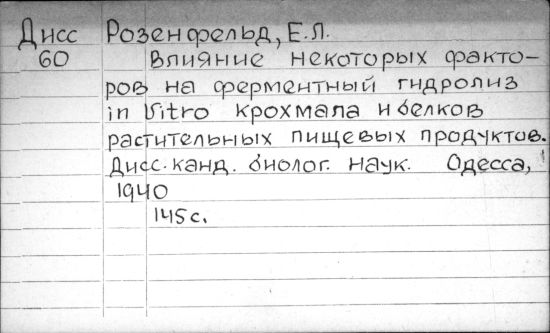 Дисс Розенфельд, Е.Л.
60 Влияние некоторых факто-
ров на ферментный гидролиз
in Vitro крохмала и белков
растительных пищевых продуктов.
Дисс. канд. биолог. наук. Одесса,
1940
145 с.